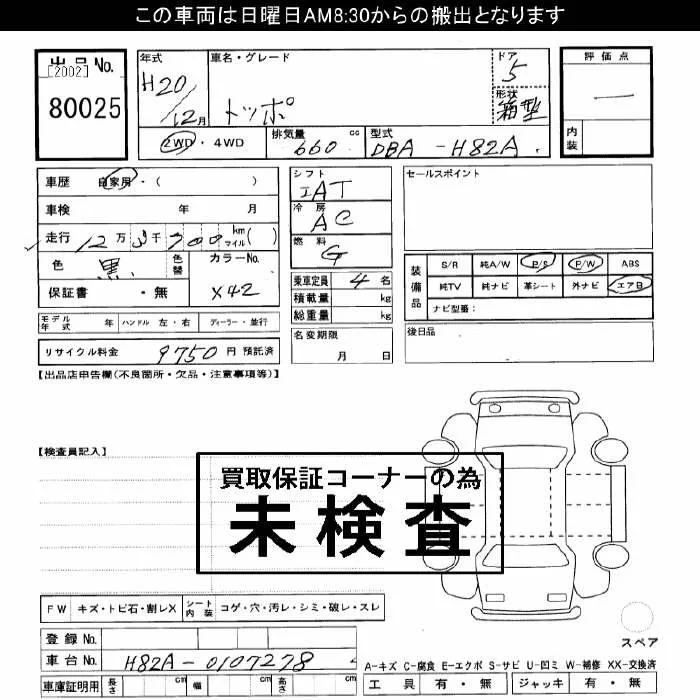 この車両は日曜日AM8:30からの搬出となります
出品No.
[2002]
80025
年式
H20/12月
車名・グレード
トッポ
ドア
5
形状
箱型
評価点
一
内装
2WD・4WD
排気量 660 cc
型式 DBA-H82A
車歴 自家用・( )
車検 年 月
走行 12万3千700 km マイル( )
色 黒
色替
カラーNo. X42
保証書 ・無
モデル年式 年
ハンドル 左・右
ディーラー・並行
リサイクル料金 9750円 預託済
シフト
IAT
冷房
AC
燃料
G
乗車定員 4名
積載量 kg
総重量 kg
名変期限
月 日
セールスポイント
装備品
S/R 純A/W P/S P/W ABS
純TV 純ナビ 革シート 外ナビ エアB
ナビ型番:
後日品
【出品店申告欄(不良箇所・欠品・注意事項等)】
【検査員記入】
買取保証コーナーの為
未検査
FW キズ・トビ石・割レX
シート内装 コゲ・穴・汚レ・シミ・破レ・スレ
登録No.
車台No. H82A-0107278
車庫証明用 長さ cm 幅 cm 高さ cm
スペア
A-キズ C-腐食 E-エクボ S-サビ U-凹ミ W-補修 XX-交換済
工具 有・無 ジャッキ 有・無